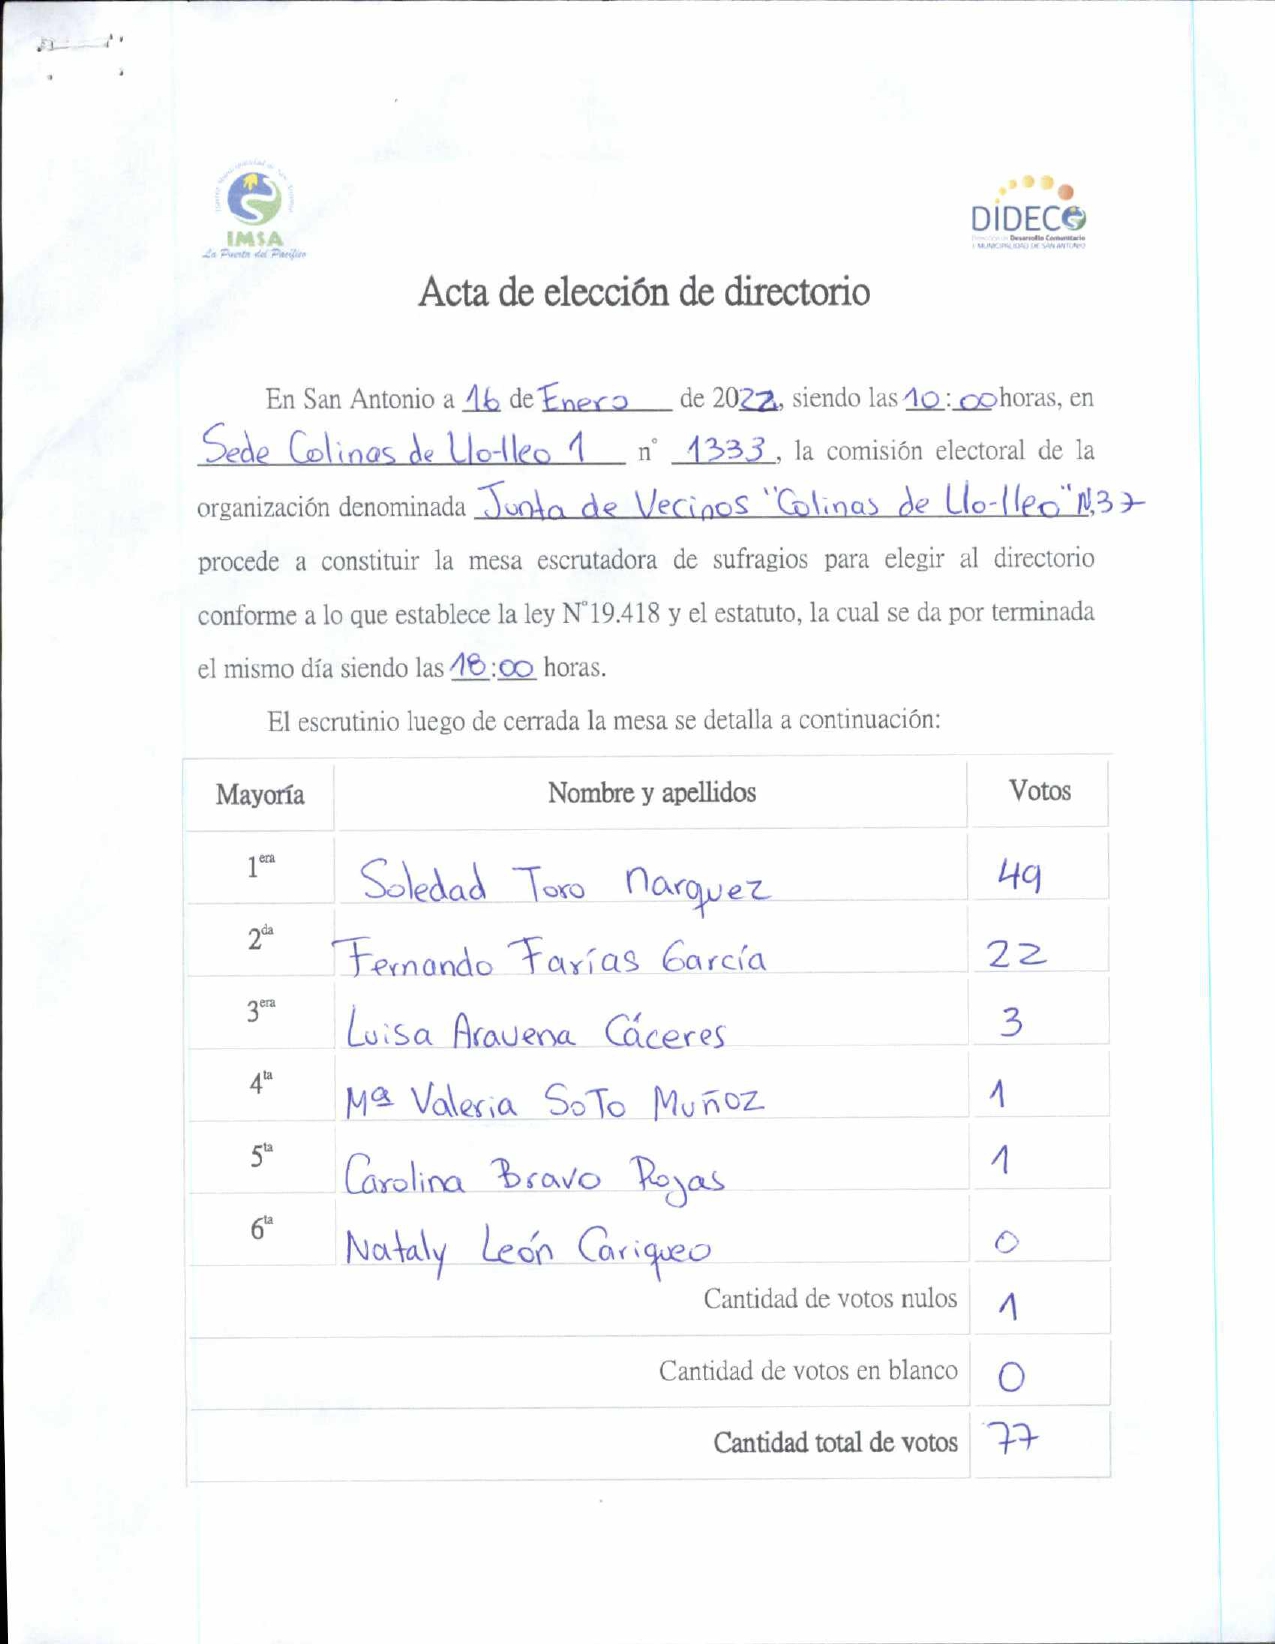 IMSA
La Puerta del Pacífico
DIDECO
Desarrollo Comunitario
I. MUNICIPALIDAD DE SAN ANTONIO
Acta de elección de directorio
En San Antonio a 16 de Enero de 2022, siendo las 10:00 horas, en
Sede Colinas de Llo-lleo 1 n° 1333, la comisión electoral de la
organización denominada Junta de Vecinos "Colinas de Llo-lleo" N.37
procede a constituir la mesa escrutadora de sufragios para elegir al directorio
conforme a lo que establece la ley N°19.418 y el estatuto, la cual se da por terminada
el mismo día siendo las 18:00 horas.
El escrutinio luego de cerrada la mesa se detalla a continuación:
Mayoría Nombre y apellidos Votos
1era Soledad Toro Marquez 49
2da Fernando Farías García 22
3era Luisa Aravena Cáceres 3
4ta Mª Valeria Soto Muñoz 1
5ta Carolina Bravo Rojas 1
6ta Nataly León Cariqueo 0
Cantidad de votos nulos 1
Cantidad de votos en blanco 0
Cantidad total de votos 77